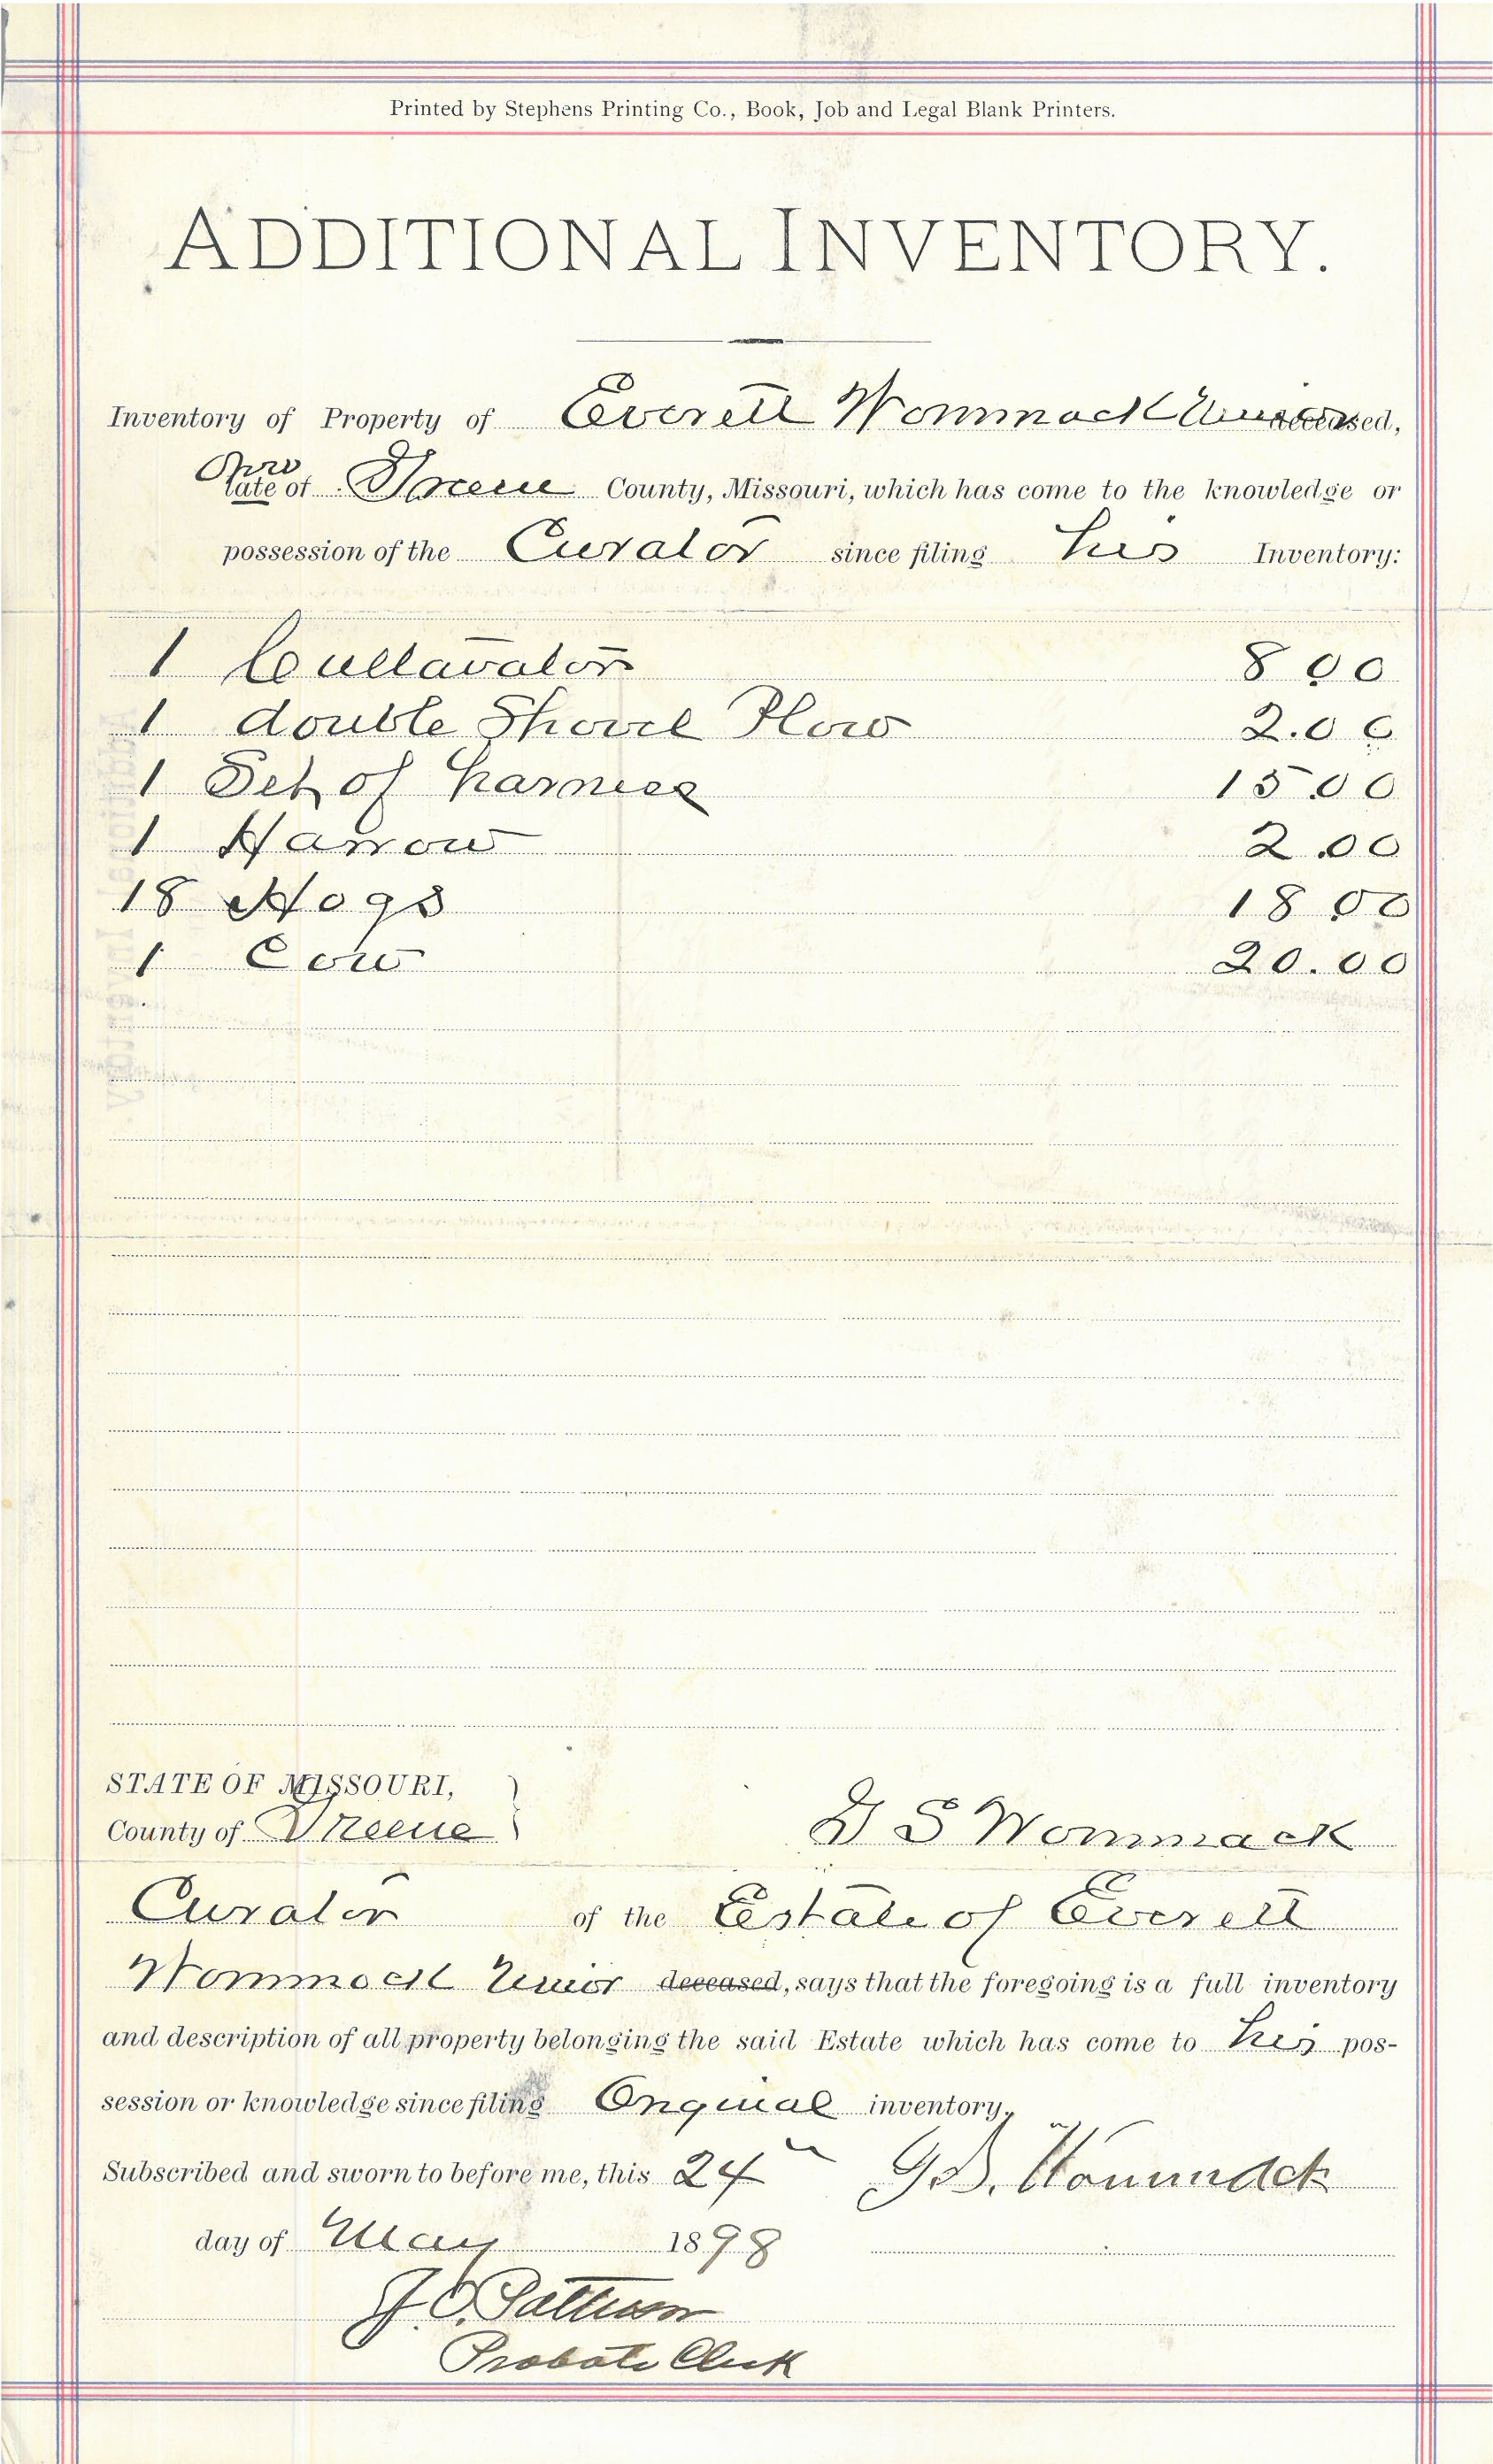 Printed by Stephens Printing Co., Book, Job and Legal Blank Printers.
ADDITIONAL INVENTORY.
Inventory of Property of Everett Wommack Minor deceased,
late of Greene County, Missouri, which has come to the knowledge or
possession of the Curator since filing his Inventory:
1 Cultavator 8 00
1 double Shovel Plow 2.00
1 Set of harness 15 00
1 Harrow 2.00
18 Hogs 18 00
1 Cow 20.00
STATE OF MISSOURI,
County of Greene
G S Wommack
Curator of the Estate of Everett
Wommack Minor deceased, says that the foregoing is a full inventory
and description of all property belonging the said Estate which has come to his pos-
session or knowledge since filing Original inventory.
Subscribed and sworn to before me, this 24 G. S. Wommack
day of May 1898
Probate Clerk